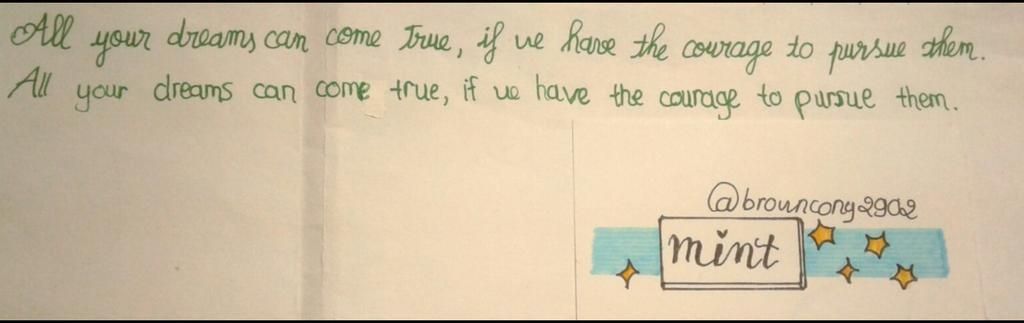 All your dreams can come True, if we have the courage to pursue them.
All your dreams can come true, if we have the courage to pursue them.
@brouncony2902
mint